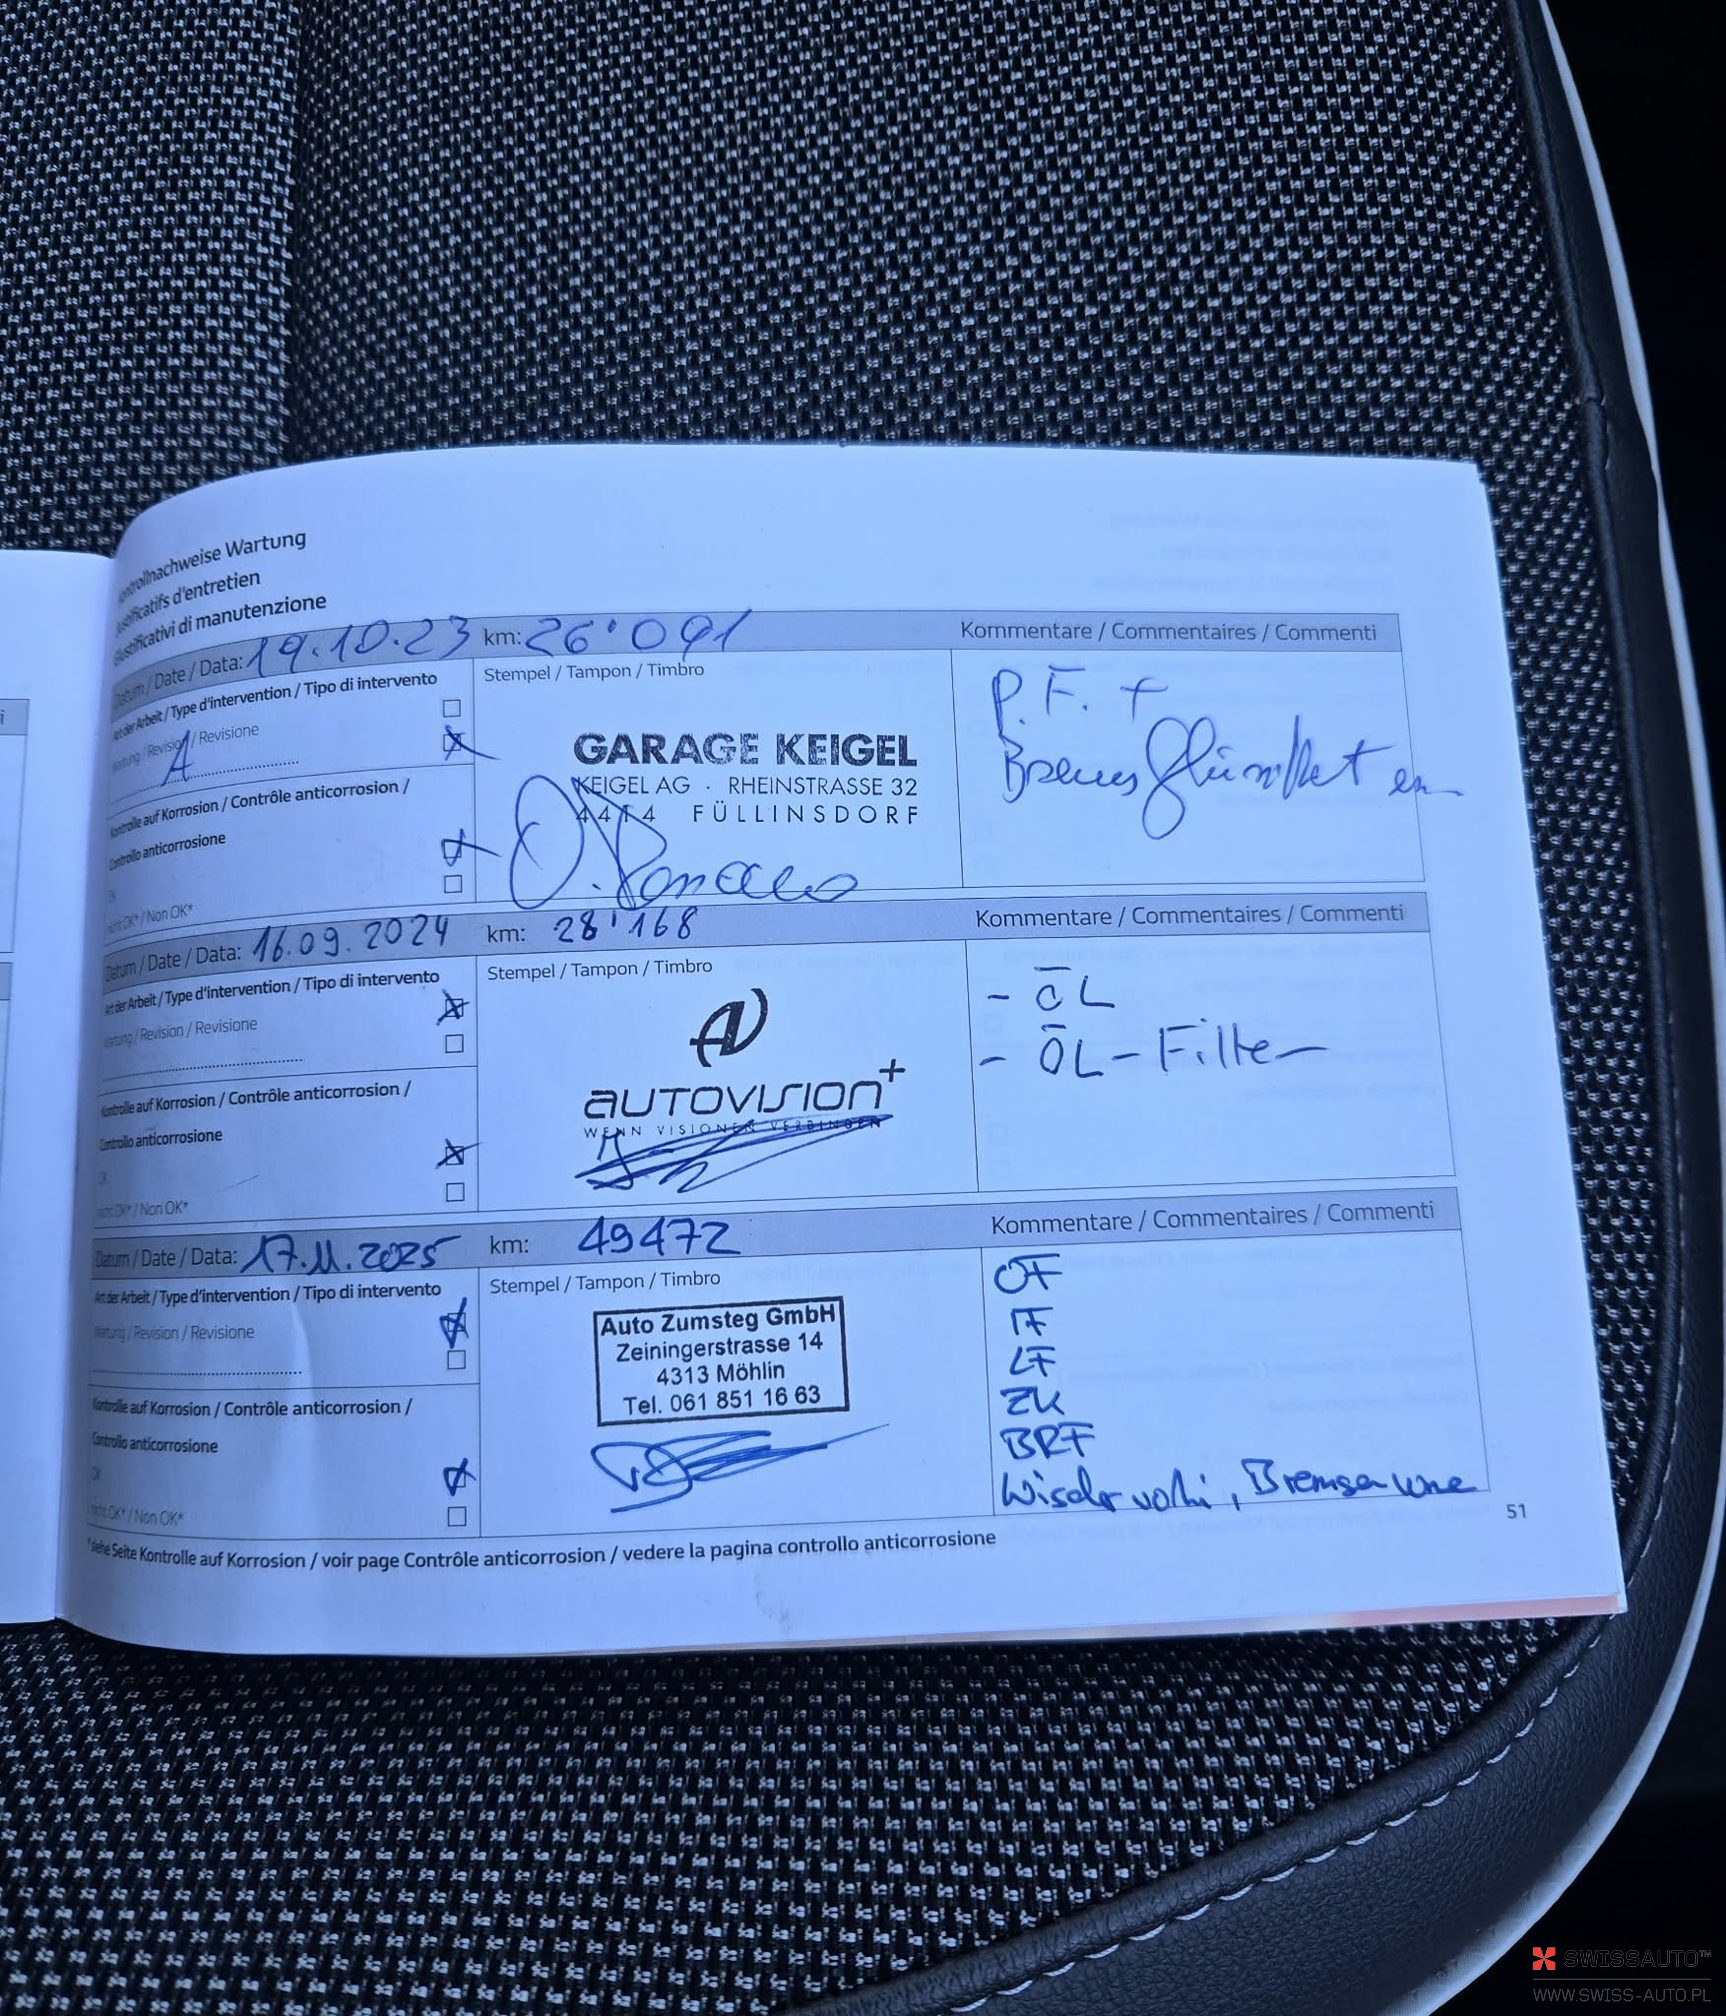 Kontrollnachweise Wartung
Justificatifs d'entretien
Giustificativi di manutenzione
Datum / Date / Data: 19.10.23 km: 26'091 Kommentare / Commentaires / Commenti
Art der Arbeit / Type d'intervention / Tipo di intervento
Wartung / Revision / Revisione
A
Kontrolle auf Korrosion / Contrôle anticorrosion /
Controllo anticorrosione
OK
nicht OK* / Non OK*
Stempel / Tampon / Timbro
GARAGE KEIGEL
KEIGEL AG · RHEINSTRASSE 32
4414 FÜLLINSDORF
P.F. +
Datum / Date / Data: 16.09.2024 km: 28'168 Kommentare / Commentaires / Commenti
Art der Arbeit / Type d'intervention / Tipo di intervento
Wartung / Revision / Revisione
Kontrolle auf Korrosion / Contrôle anticorrosion /
Controllo anticorrosione
OK
nicht OK* / Non OK*
Stempel / Tampon / Timbro
AUTOVISION+
WENN VISIONEN VERBINDEN
- ÖL
- ÖL-Filter
Datum / Date / Data: 17.11.2025 km: 49472 Kommentare / Commentaires / Commenti
Art der Arbeit / Type d'intervention / Tipo di intervento
Wartung / Revision / Revisione
Kontrolle auf Korrosion / Contrôle anticorrosion /
Controllo anticorrosione
OK
nicht OK* / Non OK*
Stempel / Tampon / Timbro
Auto Zumsteg GmbH
Zeiningerstrasse 14
4313 Möhlin
Tel. 061 851 16 63
ÖF
IF
LF
ZK
BRF
Bremsen
*siehe Seite Kontrolle auf Korrosion / voir page Contrôle anticorrosion / vedere la pagina controllo anticorrosione
51
SWISSAUTO™
WWW.SWISS-AUTO.PL